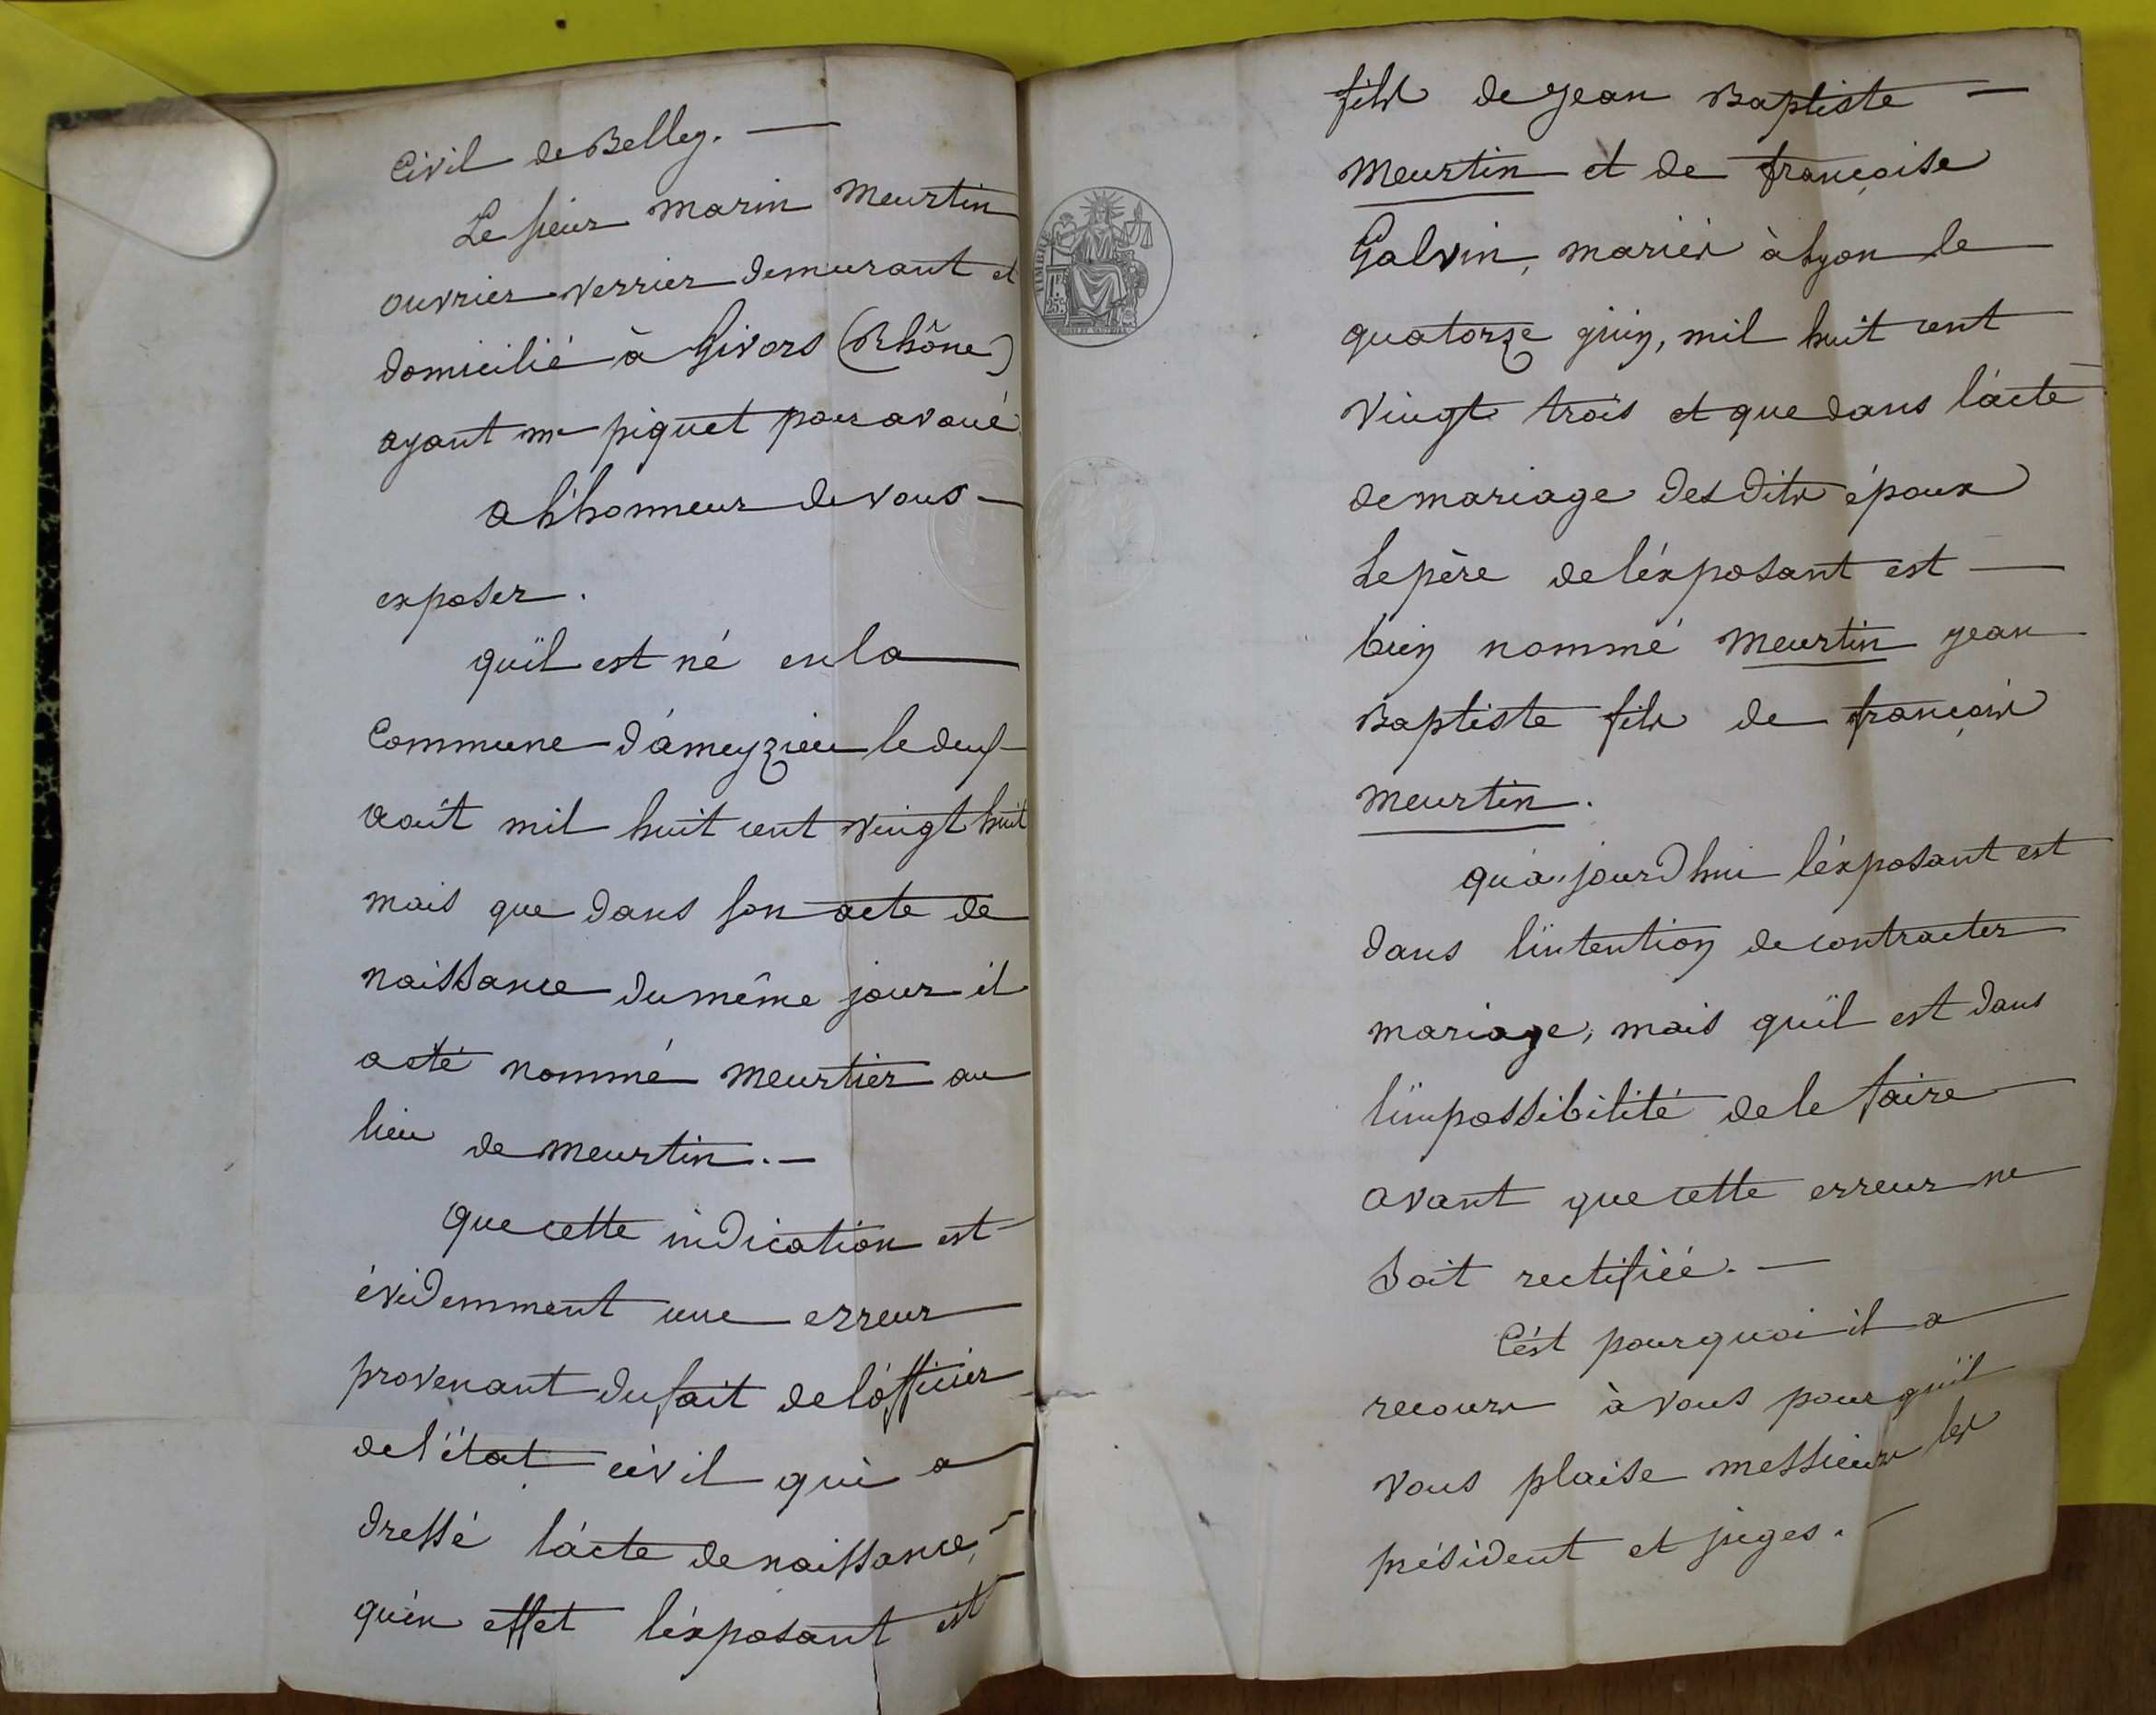 Civil de Belley. —
Le sieur Marin Meurtin
ouvrier verrier demeurant et
domicilié à Givors (Rhône)
ayant me piquet pour avoué
a l'honneur de vous —
exposer.
qu'il est né en la
Commune d'ameyzieu le deux
août mil huit cent vingt huit
mais que dans son acte de
naissance du même jour il
a été nommé meurtier au
lieu de meurtin. —
Que cette indication est
évidemment une erreur
provenant du fait de l'officier
de l'état civil qui a
dressé l'acte de naissance,
qu'en effet l'exposant est
fils de jean Baptiste —
Meurtin et de françoise
Galvin, mariés à Lyon le
quatorze juin, mil huit cent
vingt trois et que dans l'acte
de mariage des dits époux
Le père de l'exposant est —
bien nommé Meurtin jean
Baptiste fils de françois
Meurtin.
qu'aujourd'hui l'exposant est
dans l'intention de contracter
mariage, mais qu'il est dans
l'impossibilité de le faire
avant que cette erreur ne
soit rectifiée. —
C'est pourquoi il a
recours à vous pour qu'il
vous plaise messieurs les
président et juges. —
TIMBRE
1F.
25c.